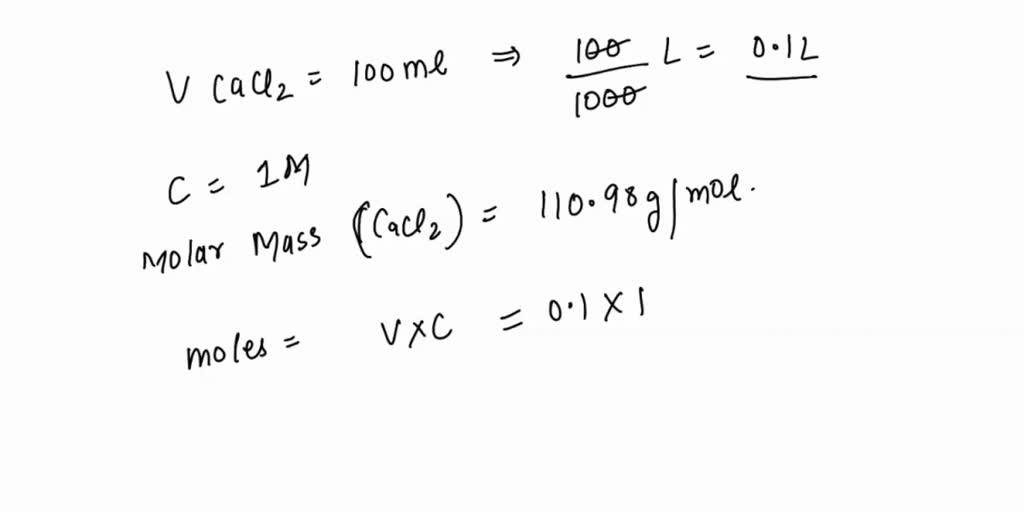 V CaCl2 = 100 ml ⇒ 100/1000 L = 0.1L
C = 1M
Molar Mass (CaCl2) = 110.98g/mol.
moles = V×C = 0.1×1